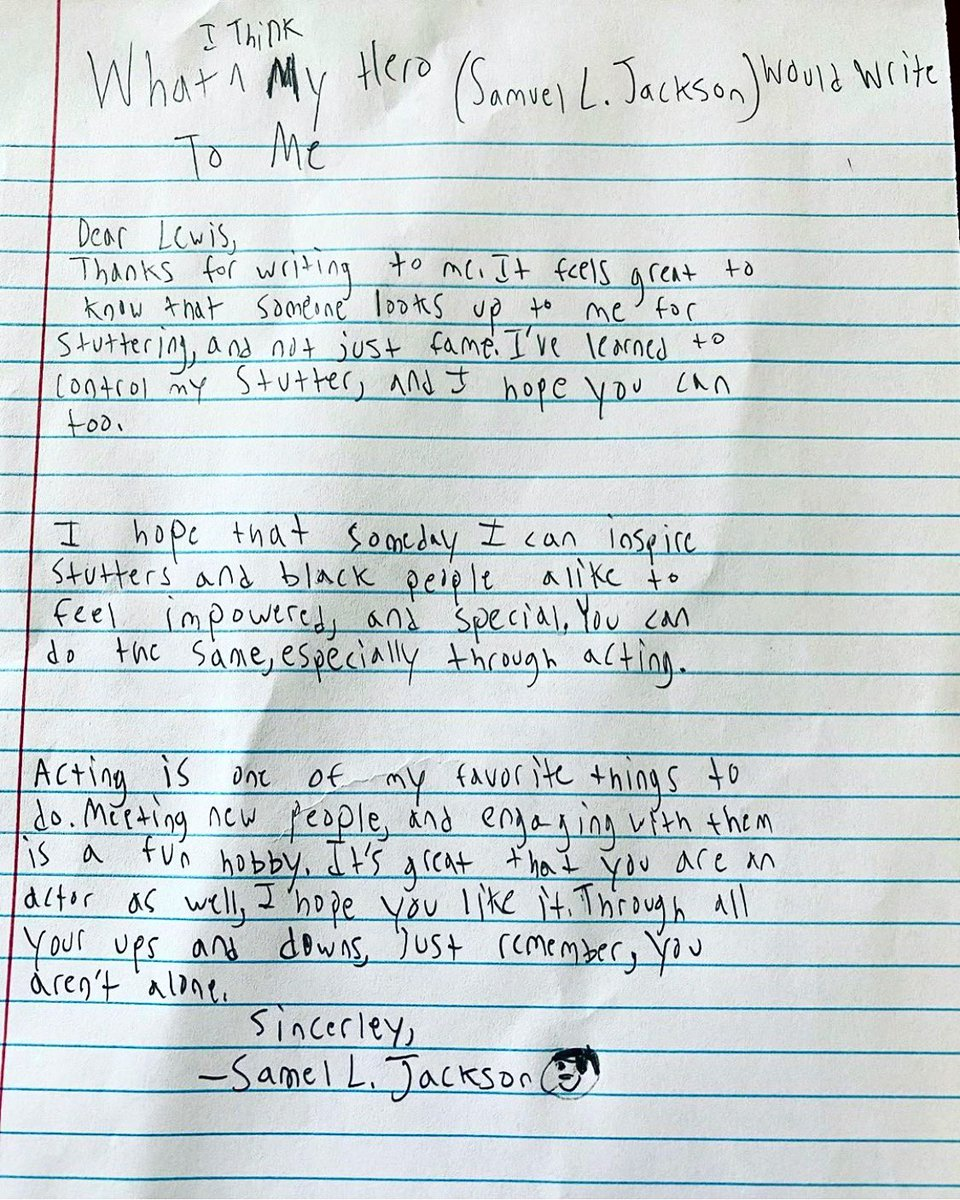 I Think
What ^ My Hero (Samuel L. Jackson) Would Write
To Me
Dear Lewis,
Thanks for writing to me. It feels great to
know that someone looks up to me for
stuttering, and not just fame. I've learned to
control my stutter, and I hope you can
too.
I hope that someday I can inspire
stutters and black people alike to
feel impowered, and special. You can
do the same, especially through acting.
Acting is one of my favorite things to
do. Meeting new people, and engaging with them
is a fun hobby. It's great that you are an
actor as well, I hope you like it. Through all
your ups and downs, just remember, you
aren't alone.
Sincerley,
-Samel L. Jackson